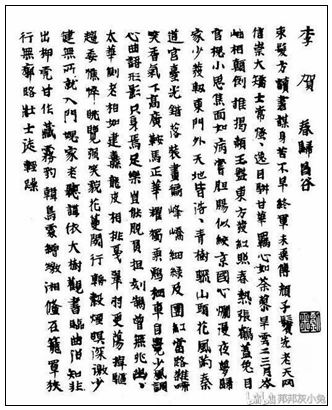 李賀 春歸昌谷
束髮方讀書謀身苦不早終軍未乘傳顏子鬢先老天网
信崇大矯士常慅〻逸目駢甘華羈心如荼蓼旱雲二三月岑
岫相顛倒誰揭頳玉盤東方發紅照春熱張鶴蓋兔目
官槐小思焦面如病嘗膽腸似絞京國心爛漫夜夢歸
家少發軔東門外天地皆浩〻青樹驪山頭花風滿秦
道宮臺光錯落裝畫徧峰嶠細綠及團紅當路雜啼
笑香氣下高廣鞍馬正華耀獨乘鷄棲車自覺少風調
心曲語形影只身焉足樂豈能脫負担刻鵠曾無兆幽〻
太華側老柏如建纛龍皮相排戛翠羽更蕩掉驅
趨委憔悴眺覽強笑貌花蔓閡行輈縠煙暝深徼少
健無所就入門愧家老聽講依大樹觀書臨曲沼知非
出柙虎甘作藏霧豹韓鳥處矰繳湘鯈在籠罩狹
行無廓路壯士徒輕躁
邦邦灰小兔